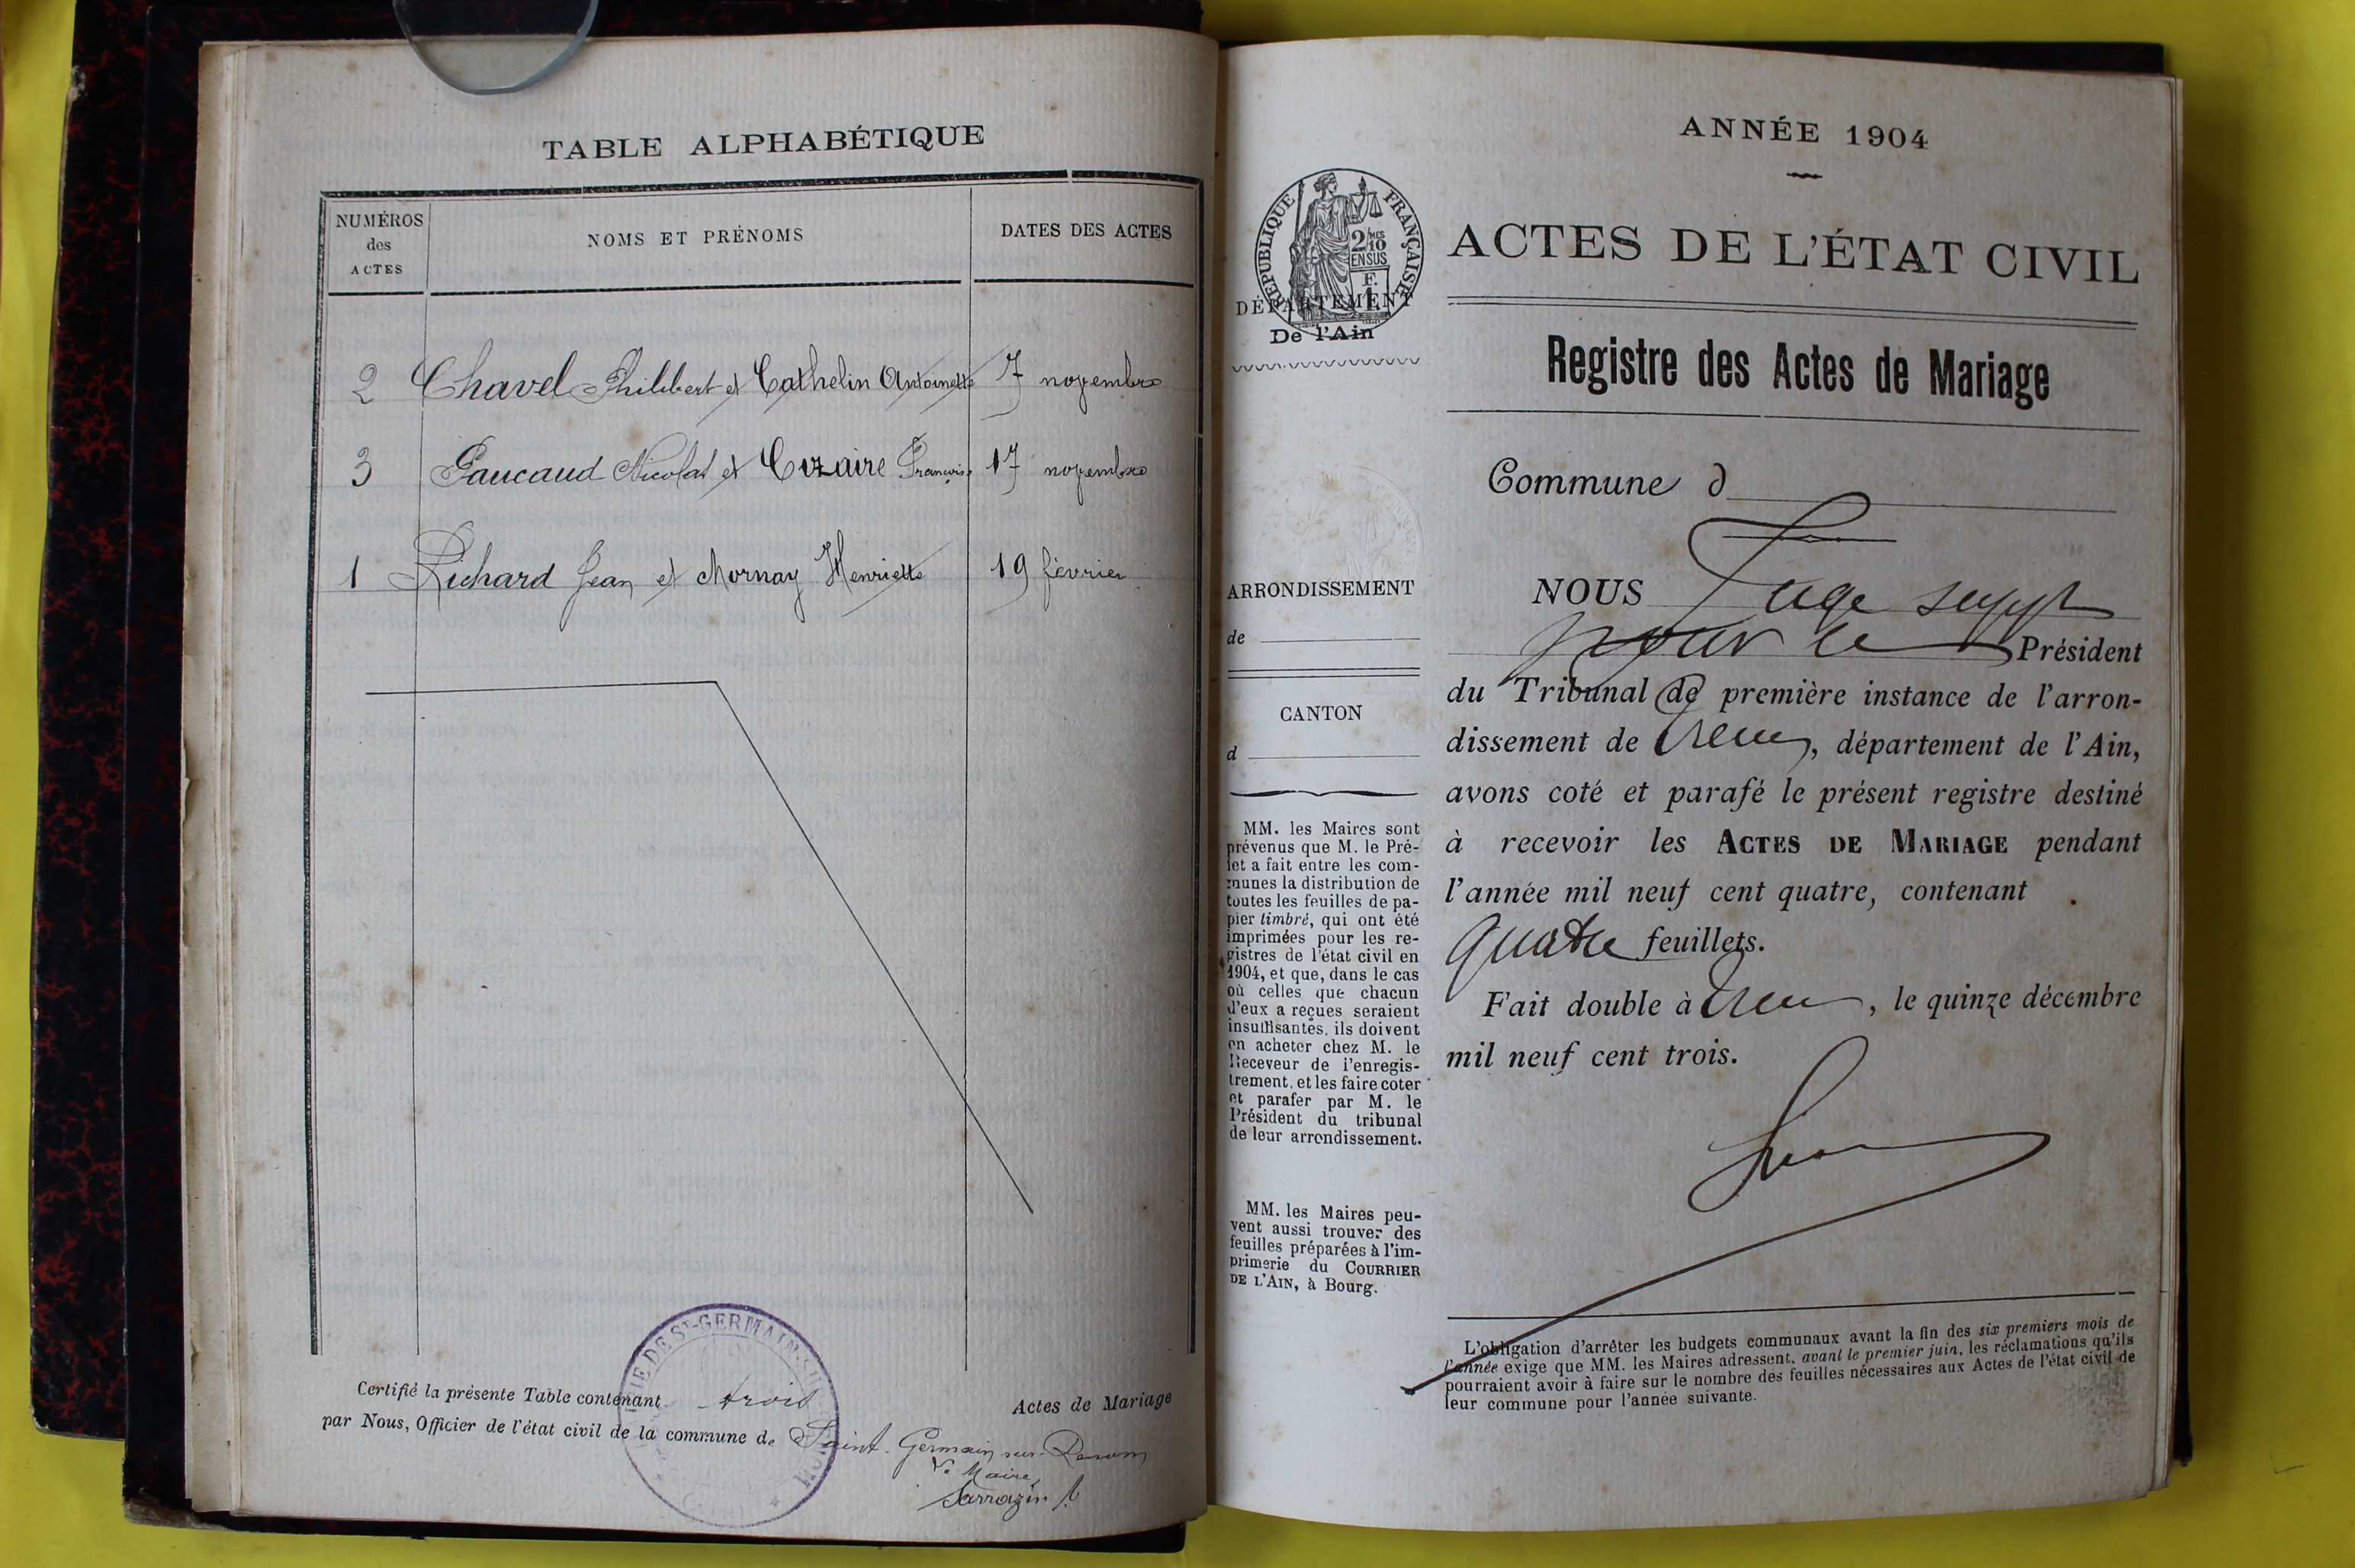 TABLE ALPHABÉTIQUE
NUMÉROS
des
ACTES
NOMS ET PRÉNOMS
DATES DES ACTES
2 Chavel Philibert et Cathelin Antoinette 7 novembre
3 Paucaud Nicolas et Cizaire Françoise 17 novembre
1 Richard Jean et Mornay Henriette 19 février
Certifié la présente Table contenant trois Actes de Mariage
par Nous, Officier de l'état civil de la commune de Saint-Germain sur Renom
Le Maire,
Sarrazin
ANNÉE 1904
RÉPUBLIQUE FRANÇAISE
2/10 MES
EN SUS
F.
1
DÉPARTEMENT
De l'Ain
ACTES DE L'ÉTAT CIVIL
Registre des Actes de Mariage
Commune d
ARRONDISSEMENT
de
CANTON
d
MM. les Maires sont
prévenus que M. le Pré-
fet a fait entre les com-
munes la distribution de
toutes les feuilles de pa-
pier timbré, qui ont été
imprimées pour les re-
gistres de l'état civil en
1904, et que, dans le cas
où celles que chacun
d'eux a reçues seraient
insuffisantes, ils doivent
en acheter chez M. le
Receveur de l'enregis-
trement, et les faire coter
et parafer par M. le
Président du tribunal
de leur arrondissement.
MM. les Maires peu-
vent aussi trouver des
feuilles préparées à l'im-
primerie du COURRIER
DE L'AIN, à Bourg.
NOUS Juge suppt
pour le Président
du Tribunal de première instance de l'arron-
dissement de Trévoux, département de l'Ain,
avons coté et parafé le présent registre destiné
à recevoir les ACTES DE MARIAGE pendant
l'année mil neuf cent quatre, contenant
quatre feuillets.
Fait double à Trévoux, le quinze décembre
mil neuf cent trois.
L'obligation d'arrêter les budgets communaux avant la fin des six premiers mois de
l'année exige que MM. les Maires adressent, avant le premier juin, les réclamations qu'ils
pourraient avoir à faire sur le nombre des feuilles nécessaires aux Actes de l'état civil de
leur commune pour l'année suivante.